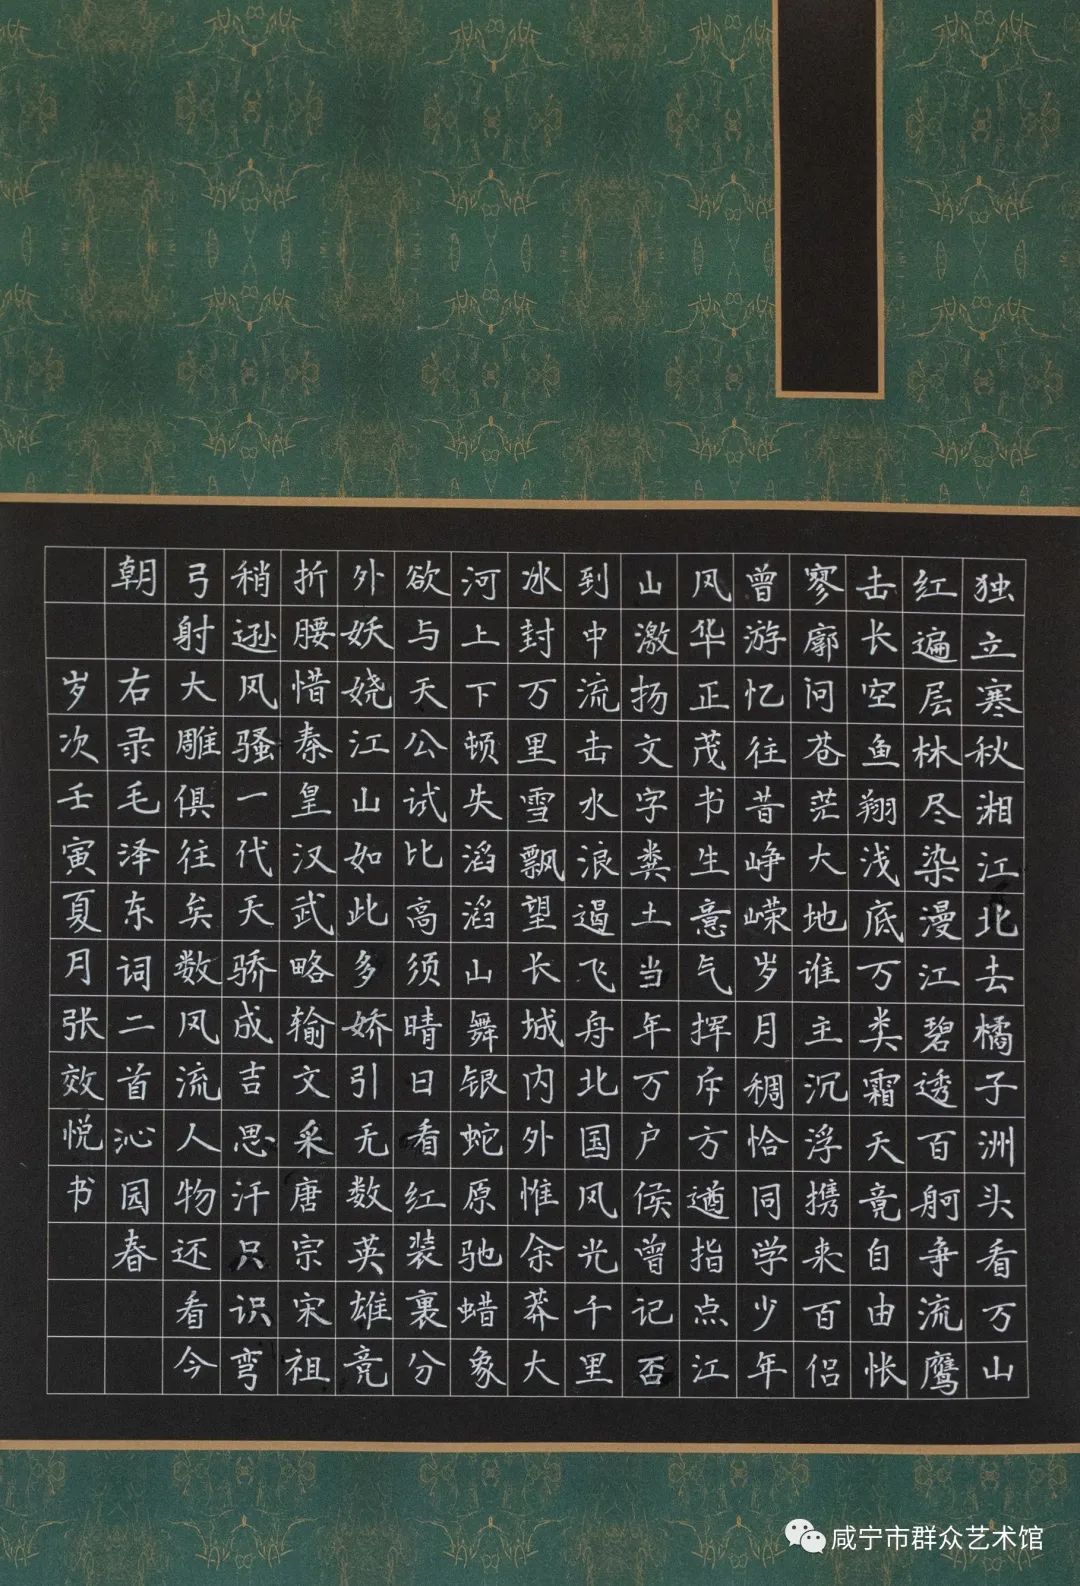 独立寒秋湘江北去橘子洲头看万山
红遍层林尽染漫江碧透百舸争流鹰
击长空鱼翔浅底万类霜天竟自由怅
寥廓问苍茫大地谁主沉浮携来百侣
曾游忆往昔峥嵘岁月稠恰同学少年
风华正茂书生意气挥斥方遒指点江
山激扬文字粪土当年万户侯曾记否
到中流击水浪遏飞舟北国风光千里
冰封万里雪飘望长城内外惟余莽大
河上下顿失滔滔山舞银蛇原驰蜡象
欲与天公试比高须晴日看红装裹分
外妖娆江山如此多娇引无数英雄竞
折腰惜秦皇汉武略输文采唐宗宋祖
稍逊风骚一代天骄成吉思汗只识弯
弓射大雕俱往矣数风流人物还看今
朝 右录毛泽东词二首沁园春
岁次壬寅夏月张效悦书
咸宁市群众艺术馆